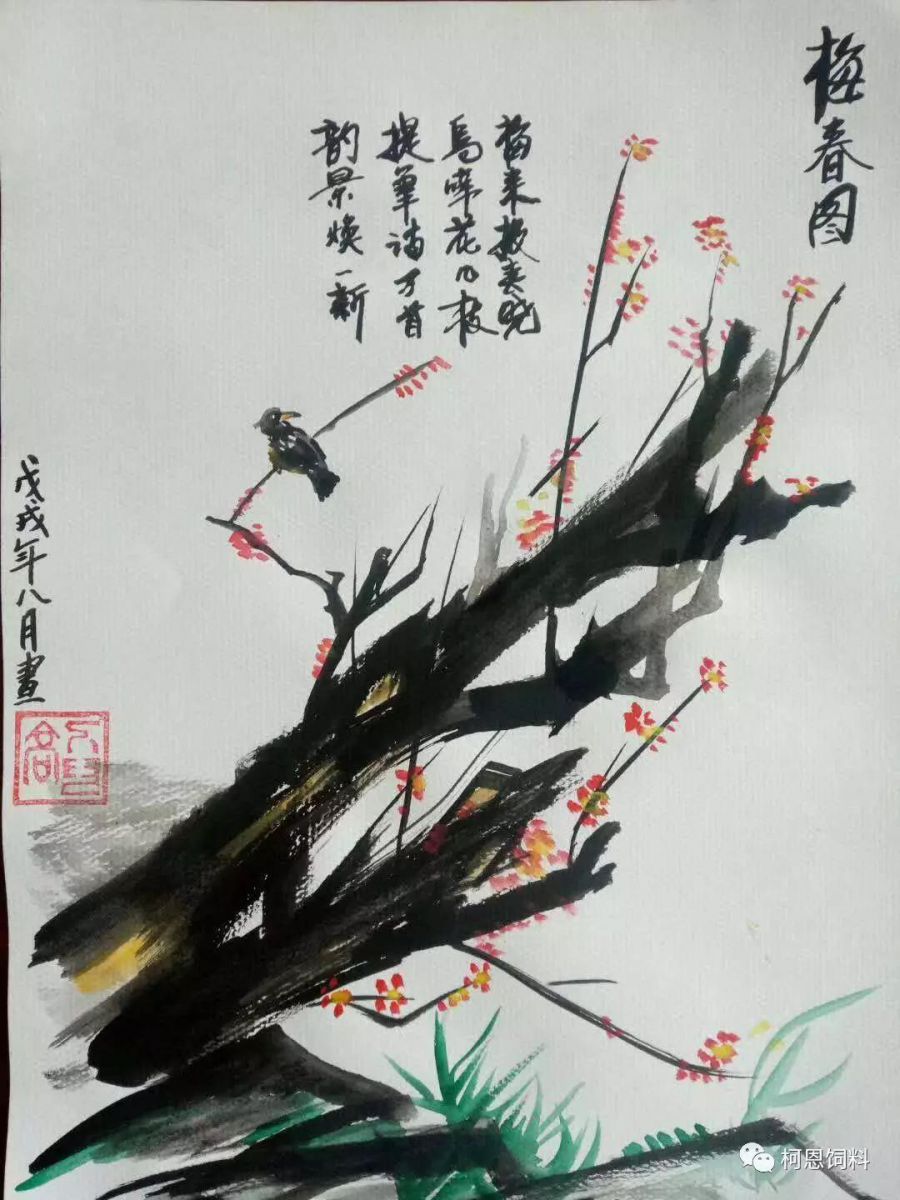 梅春图
梅来报春晓
鸟啼花枝
提笔诗万首
韵景焕一新
戊戌年八月畫
柯恩饲料